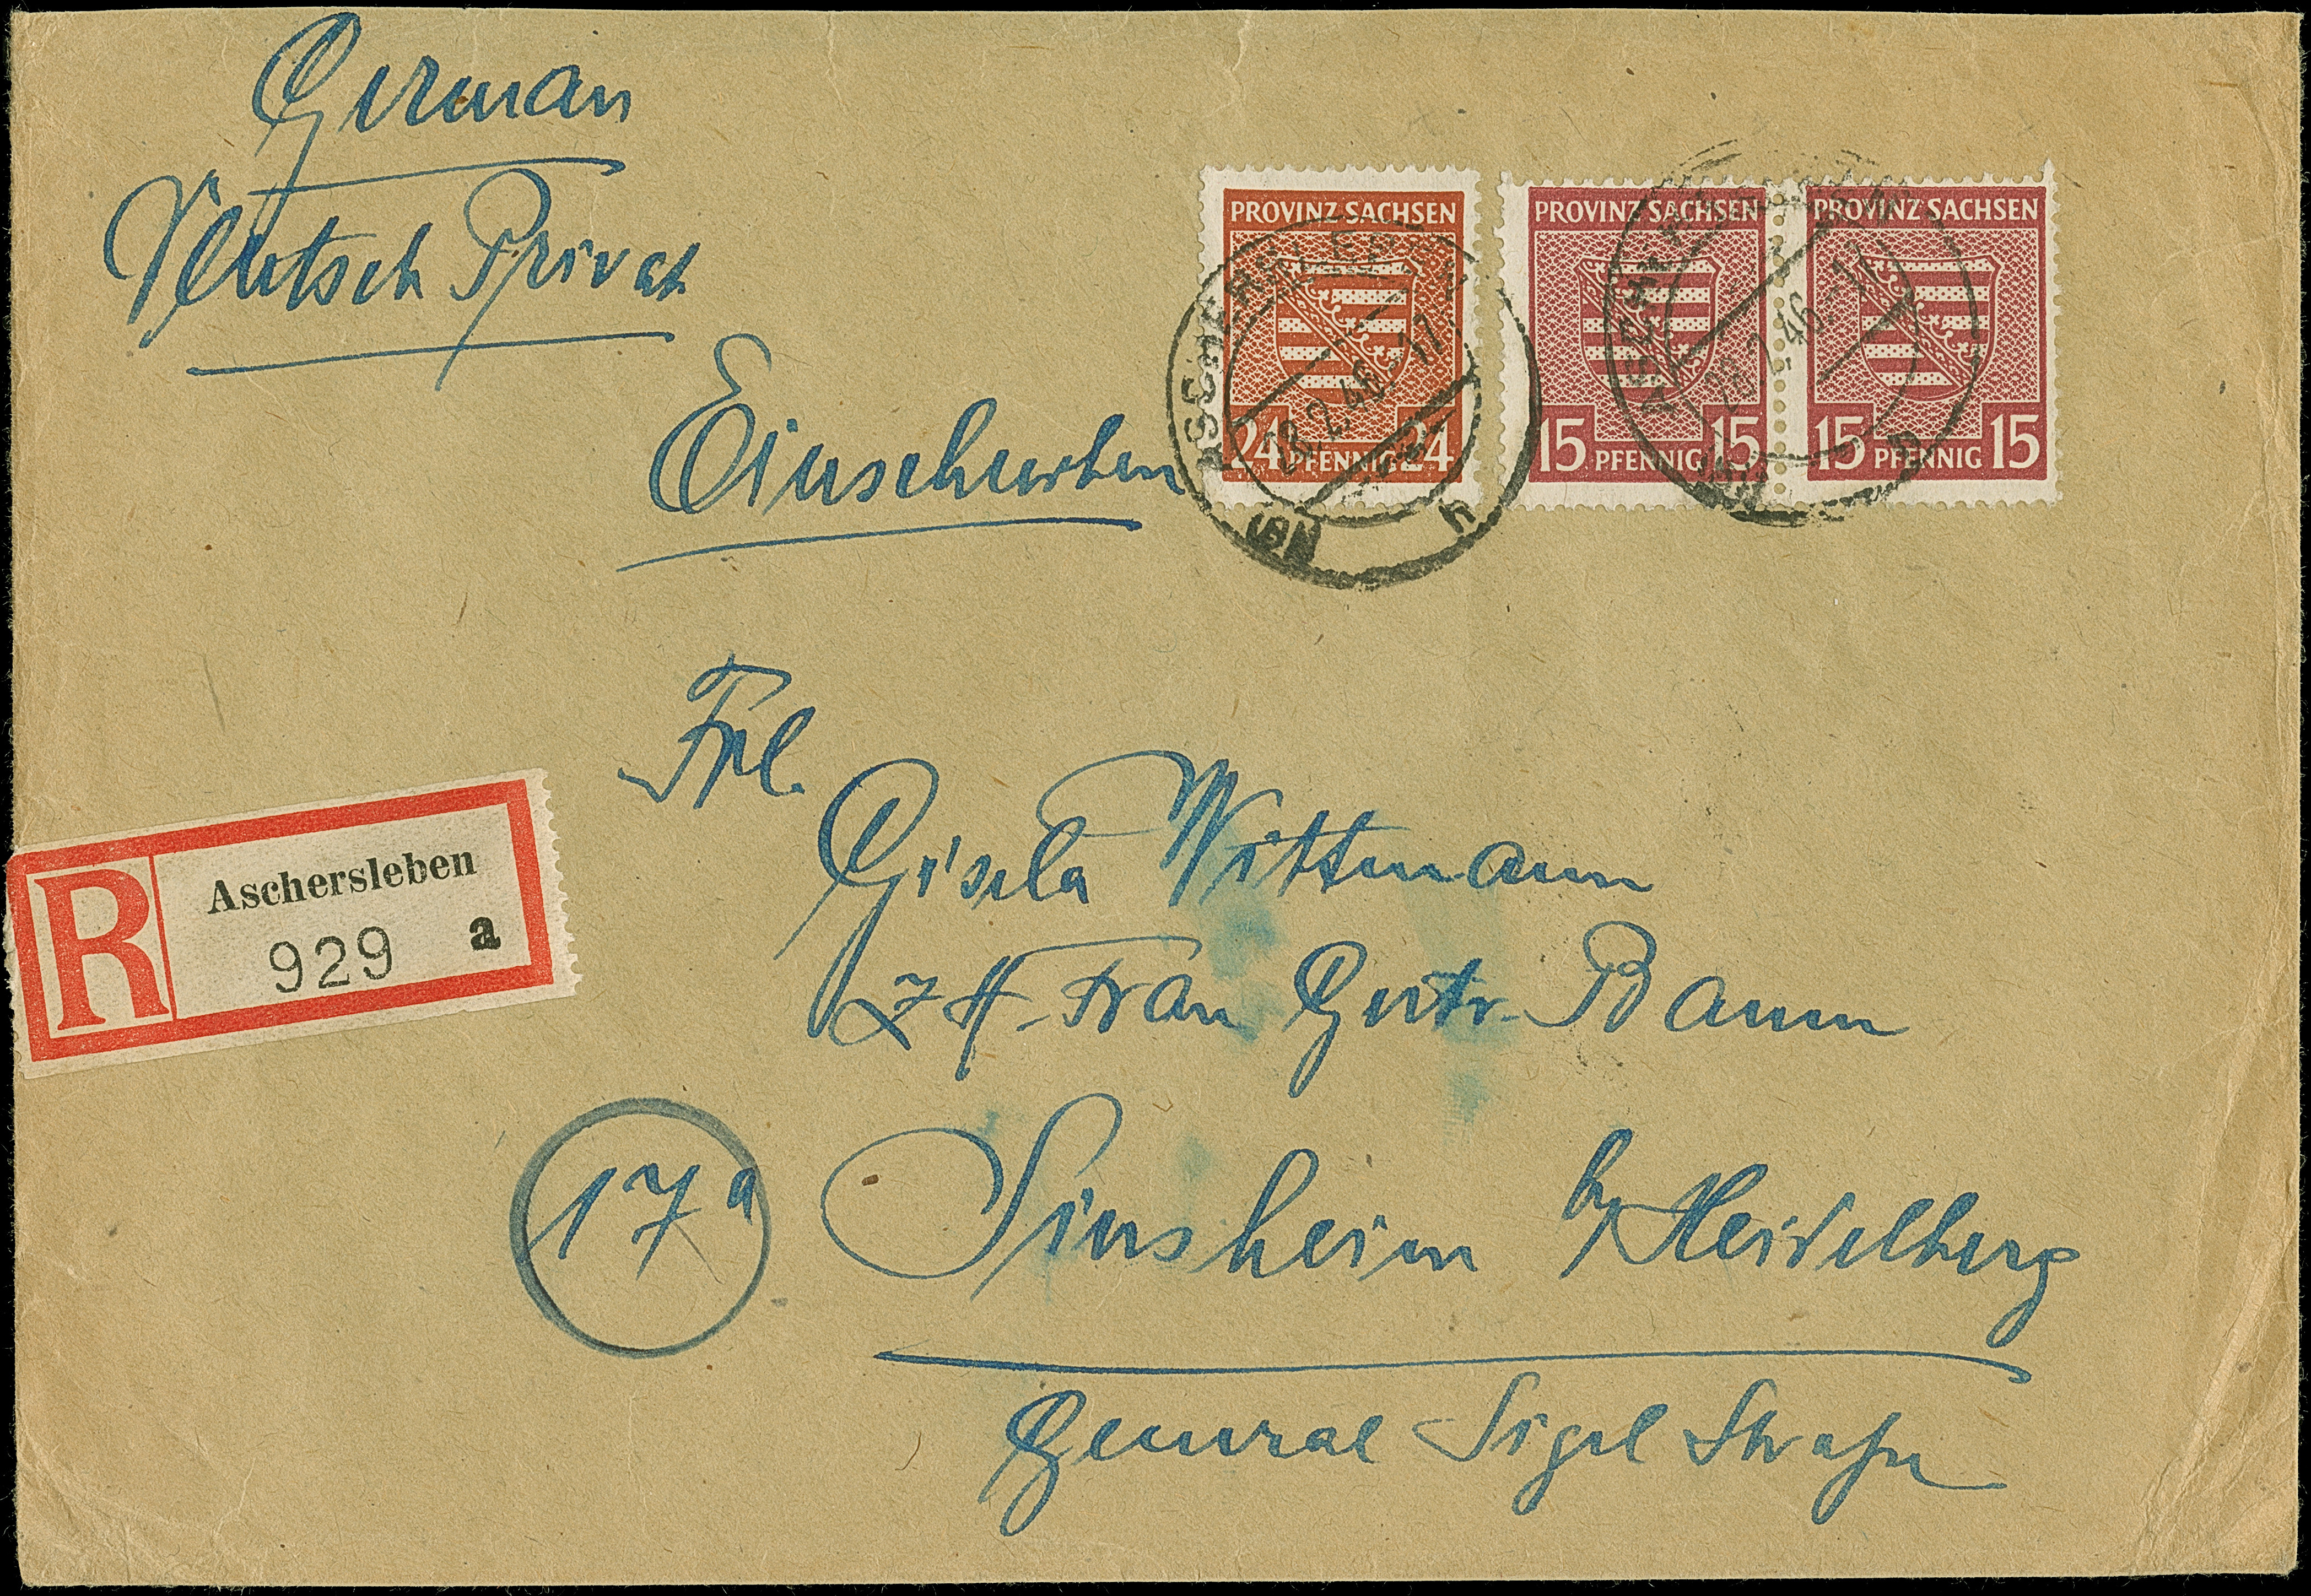 German
Deutsch Privat
Einschreiben
PROVINZ SACHSEN
24 PFENNIG 24
PROVINZ SACHSEN
15 PFENNIG 15
PROVINZ SACHSEN
15 PFENNIG 15
ASCHERSLEBEN
28.2.46.-17
h
ASCHERSLEBEN
28.2.46.-17
h
Frl.
Gisela Wittmann
z H. Frau Gertr. Baum
R Aschersleben
929 a
17a Sinsheim b/ Heidelberg
General Sigel Straße